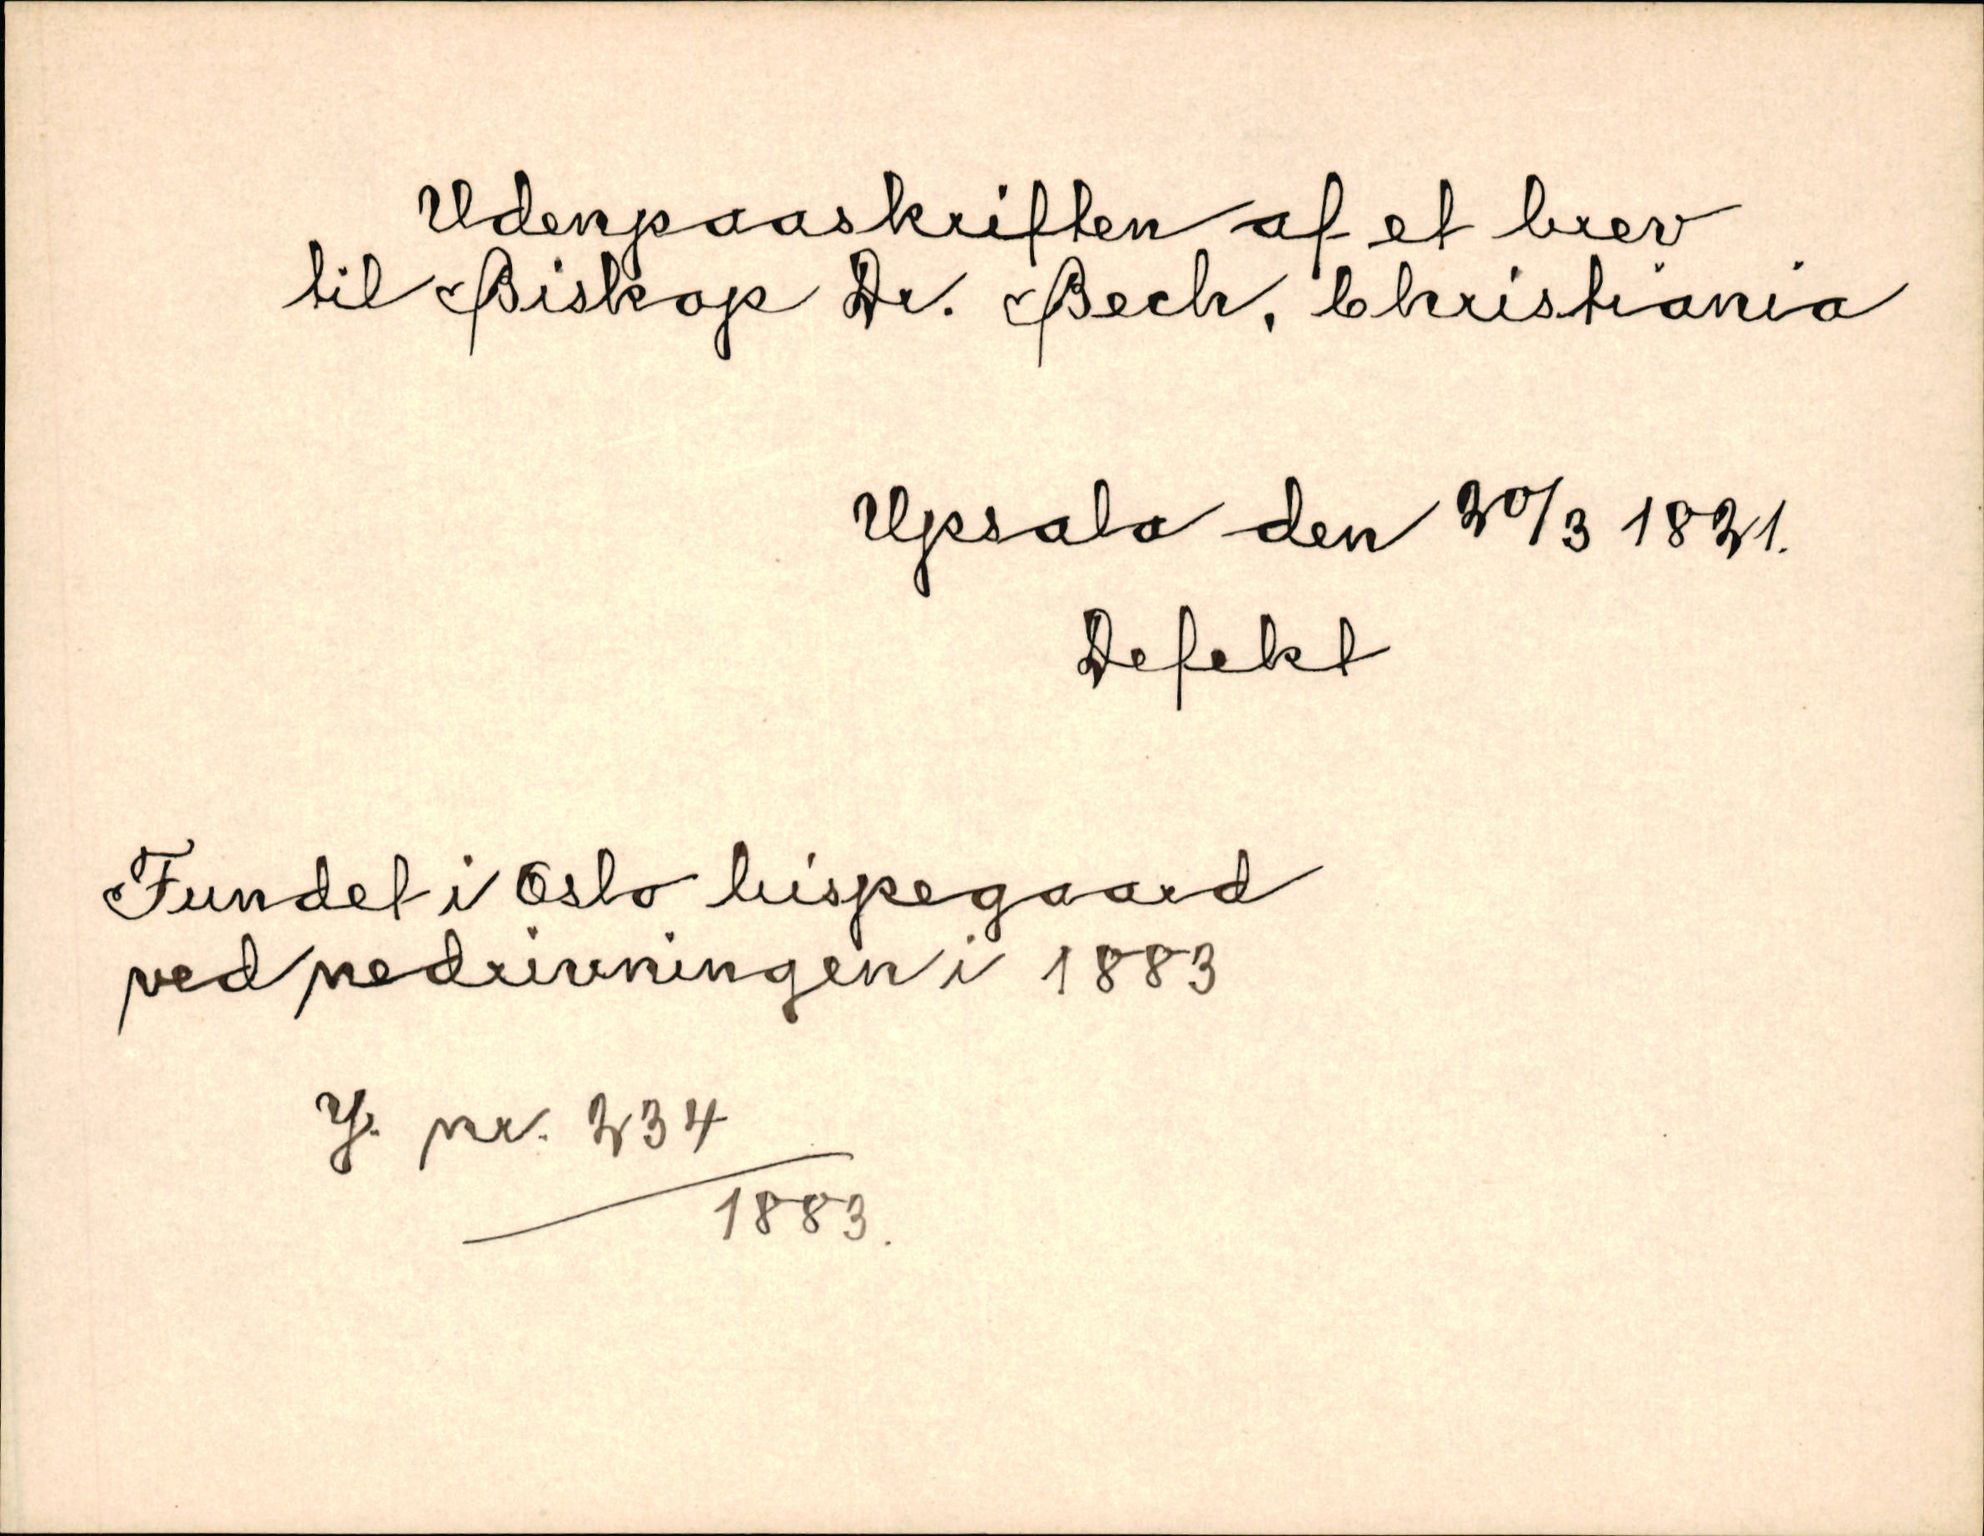 Udenpaaskriften af et brev
til Biskop Dr. Bech, Christiania
Upsala den 20/3 1821.
Defekt
Fundet i Oslo bispegaard
ved nedrivningen i 1883
Y. nr. 234
1883.